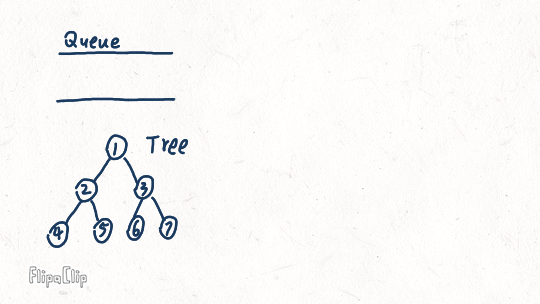 Queue
1 Tree
2 3
4 5 6 7
FlipaClip